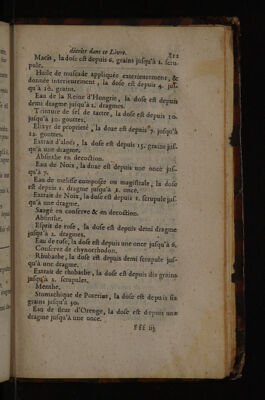 décrites dans ce Livre. 811
Macis, la dose est depuis 6. grains jusqu'à 2. scru-
pule.
Huile de muscade appliquée exterieurement, &
donnée interieurement, la dose est depuis 4. jus-
qu'à 10. grains.
Eau de la Reine d'Hongrie, la dose est depuis
demi dragme jusqu'à 2. dragmes.
Teinture de sel de tartre, la dose est depuis 10.
jusqu'à 30. gouttes.
Elixyr de proprieté, la dose est depuis 7. jusqu'à
12. gouttes.
Extrait d'aloës, la dose est depuis 15. grains jus-
qu'à une dragme.
Absinthe en decoction.
Eau de Noix, la dose est depuis une once jus-
qu'à 7.
Eau de melisse composée ou magistrale, la dose
est depuis 1. dragme jusqu'à 1. once.
Extrait de Noix, la dose est depuis 1. scrupule jus-
qu'à une dragme.
Sauge en conserve & en decoction.
Absinthe.
Esprit de rose, la dose est depuis demi dragme
jusqu'à 2. dragmes.
Eau de rose, la dose est depuis une once jusqu'à 6.
Conserve de chynorrhodon.
Rhubarbe, la dose est depuis demi scrupule jus-
qu'à une dragme.
Extrait de rhubarbe, la dose est depuis dix grains
jusqu'à 2. scrupules.
Menthe.
Stomachique de Poterius, la dose est depuis six
grains jusqu'à 30.
Eau de fleur d'Orenge, la dose est depuis une
dragme jusqu'à une once.
Fff iij